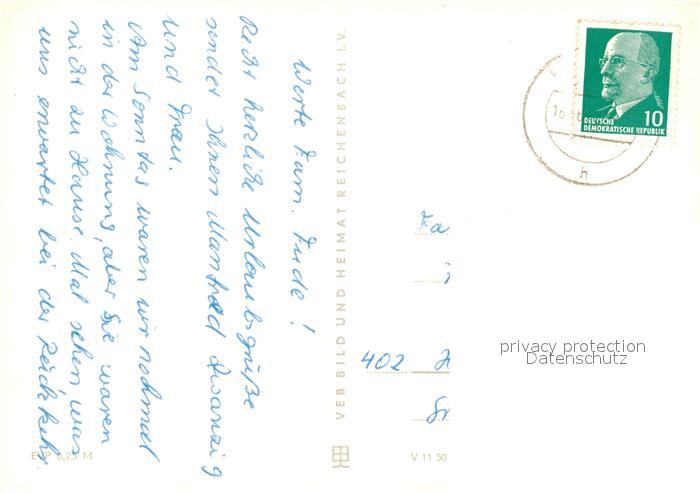 Werte Fam. Fude!
Recht herzliche Urlaubsgrüße
sendet Ihnen Manfred Zwanzig
und Frau.
Am Sonntag waren wir nochmal
in der Wohnung, aber Sie waren
nicht zu Hause. Mal sehen, was
uns erwartet bei der Rückkehr.
EVP 0,25 M
VEB BILD UND HEIMAT REICHENBACH I.V.
V 11 50
10
DEUTSCHE
DEMOKRATISCHE REPUBLIK
h
Fa
402 H
privacy protection
Datenschutz